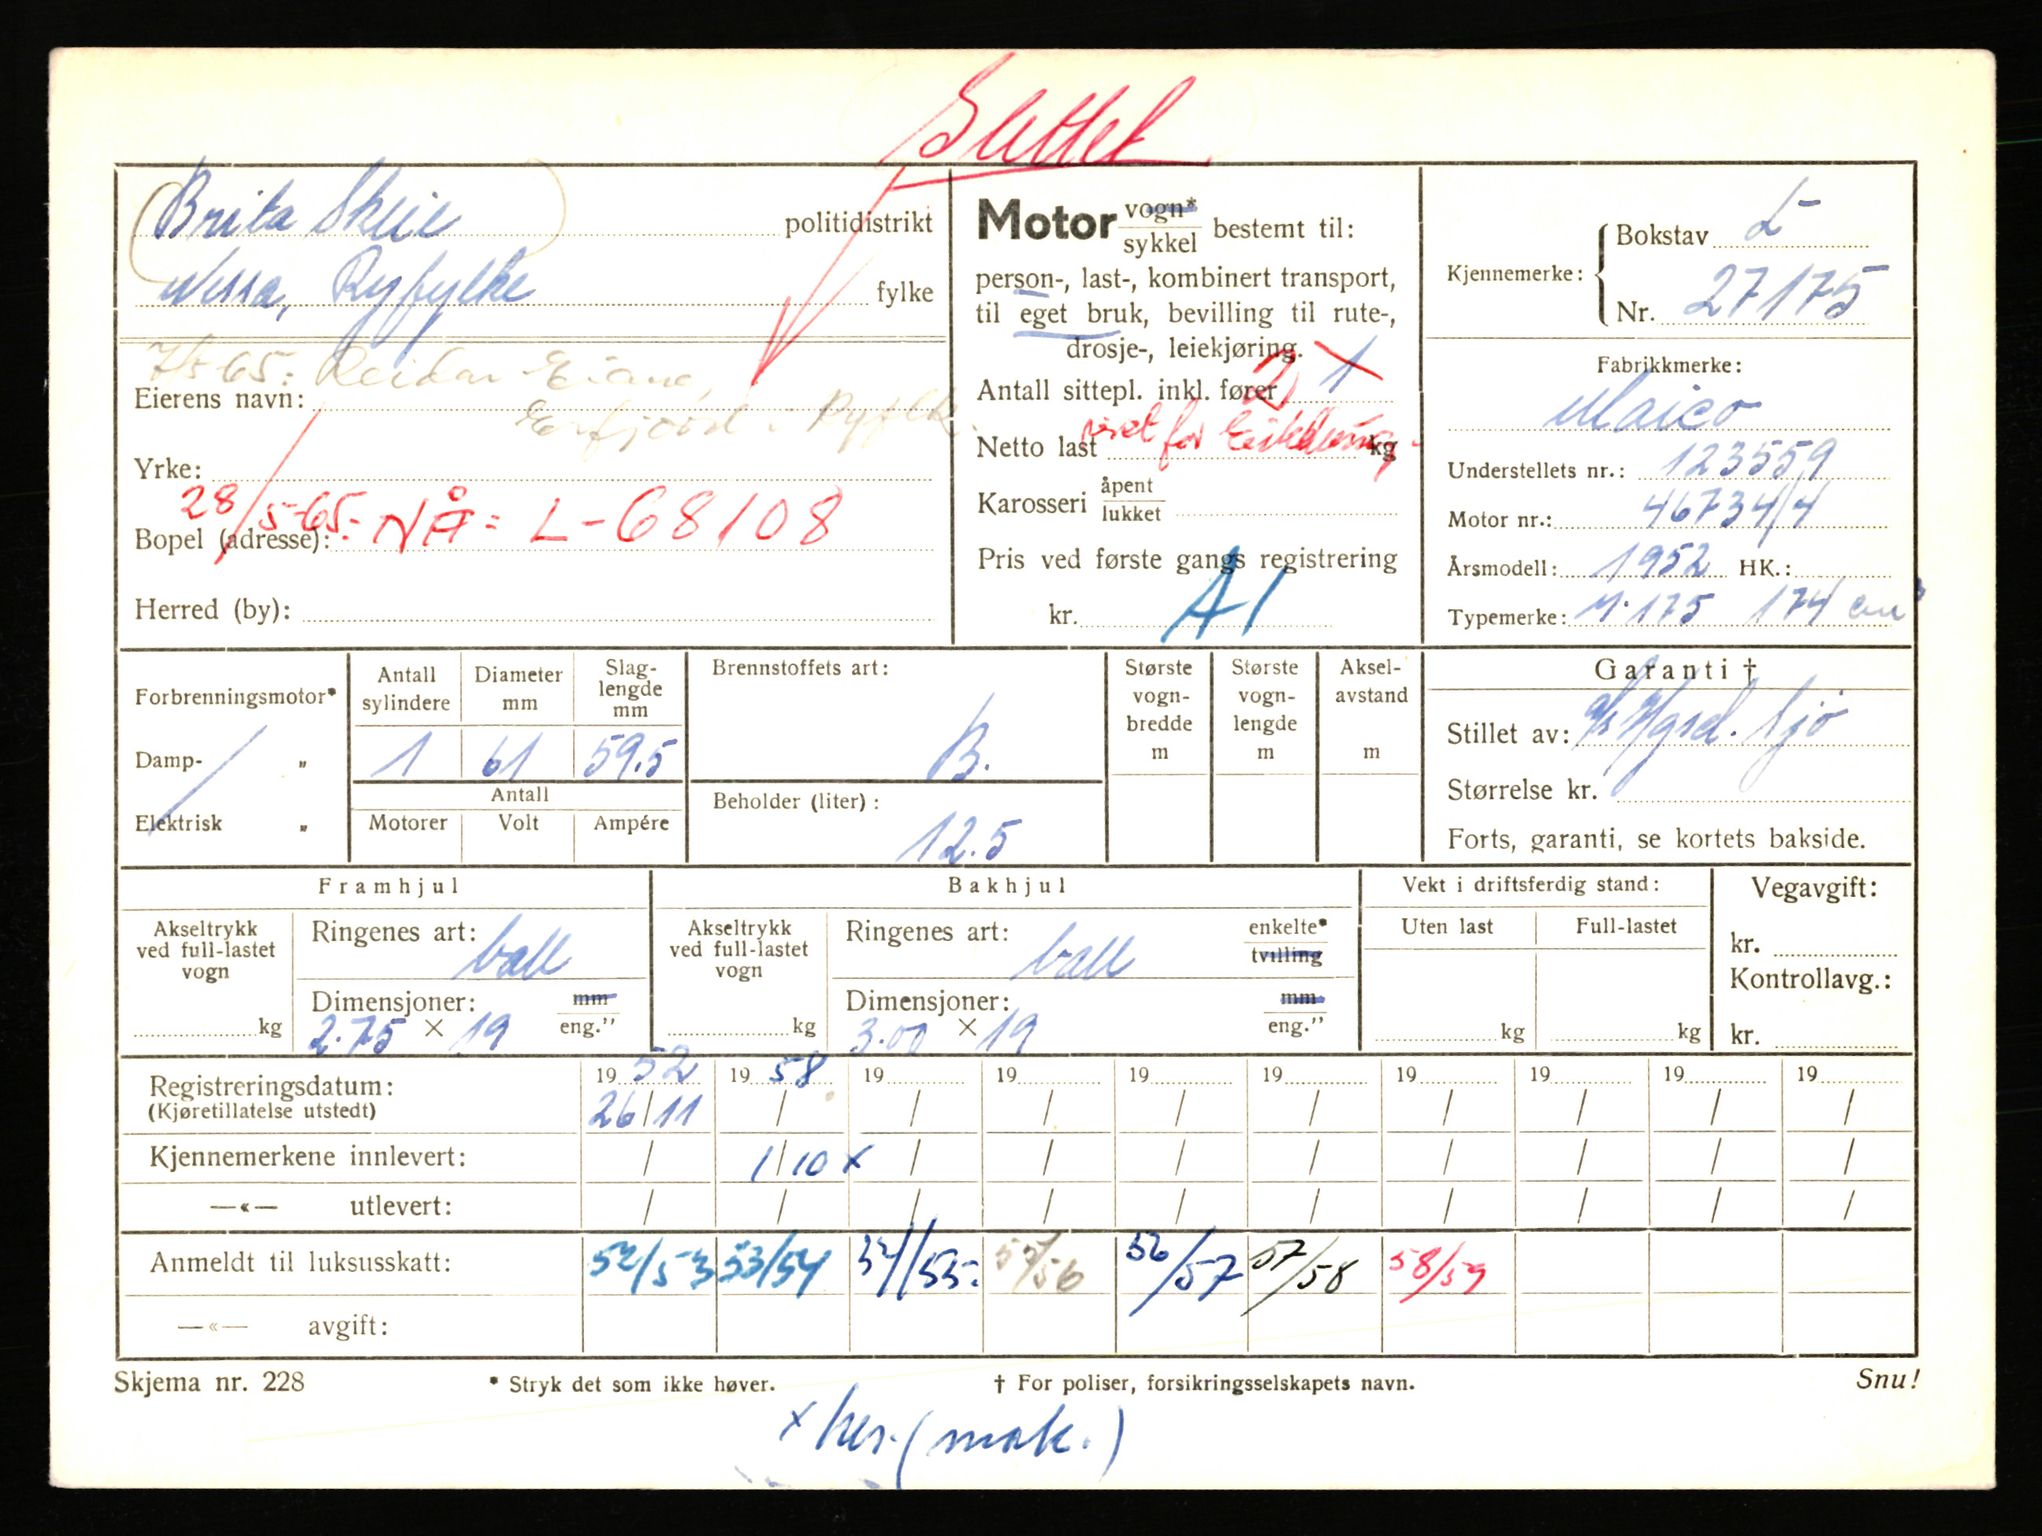 Slettet
Brita Skeie politidistrikt
Nessa, Ryfylke fylke
7/5-65: Reidar Eiane,
Eierens navn:
Erfjord i Ryflk.
Yrke:
28/5-65- NÅ: L-68108
Bopel (adresse):
Herred (by):
Motor vogn* sykkel bestemt til:
person-, last-, kombinert transport,
til eget bruk, bevilling til rute-,
drosje-, leiekjøring.
Antall sittepl. inkl. fører 2 1
Netto last for kg
Karosseri åpent lukket
Pris ved første gangs registrering
kr. A1
Kjennemerke: Bokstav L-
Nr. 27175
Fabrikkmerke:
Maico
Understellets nr.: 123559
Motor nr.: 46734/4
Årsmodell: 1952 HK.:
Typemerke: M.175 174 cm³
Forbrenningsmotor*
Damp- „
Elektrisk „
Antall sylindere Diameter mm Slag-lengde mm
1 61 59.5
Antall
Motorer Volt Ampére
Brennstoffets art:
B.
Beholder (liter):
12.5
Største vogn-bredde m
Største vogn-lengde m
Aksel-avstand m
Garanti †
Stillet av: Sjø
Størrelse kr.
Forts, garanti, se kortets bakside.
Framhjul
Akseltrykk ved full-lastet vogn
kg
Ringenes art: ball
Dimensjoner: mm
2.75 × 19 eng.”
Bakhjul
Akseltrykk ved full-lastet vogn
kg
Ringenes art: ball enkelte* tvilling
Dimensjoner: mm
3.00 × 19 eng.”
Vekt i driftsferdig stand:
Uten last Full-lastet
kg kg
Vegavgift:
kr.
Kontrollavg.:
kr.
Registreringsdatum: 19 52 19 58 19 19 19 19 19 19 19 19
(Kjøretillatelse utstedt) 26/11 / / / / / / / / /
Kjennemerkene innlevert: / 1/10 x / / / / / / / /
—«— utlevert: / / / / / / / / / /
Anmeldt til luksusskatt: 52/53 53/54 54/55: 55/56 56/57 57/58 58/59
—«— avgift:
Skjema nr. 228 * Stryk det som ikke høver. † For poliser, forsikringsselskapets navn. Snu!
x her. (mak.)